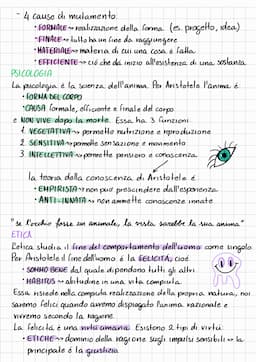 - 4 cause di mutamento:
• FORMALE ~> realizzazione della forma. (es. progetto, idea)
• FINALE ~> tutto ha un fine da raggiungere
• MATERIALE ~> materia di cui una cosa è fatta.
• EFFICIENTE ~> ciò che dà inizio all'esistenza di una sostanza
PSICOLOGIA
La psicologia è la scienza dell'anima. Per Aristotele l'anima è:
• FORMA DEL CORPO
• CAUSA formale, efficiente e finale del corpo
e NON VIVE dopo la morte. Essa ha 3 funzioni:
1. VEGETATIVA ~> permette nutrizione e riproduzione
2. SENSITIVA ~> permette sensazione e movimento
3. INTELLETTIVA ~> permette pensiero e conoscenza
la teoria della conoscenza di Aristotele è:
• EMPIRISTA ~> non può prescindere dall'esperienza
• ANTI-INNATA ~> non ammette conoscenze innate
"se l'occhio fosse un animale, la vista sarebbe la sua anima"
ETICA
L'etica studia il fine del comportamento dell'uomo come singolo.
Per Aristotele il fine dell'uomo è la FELICITÀ, cioè
• SOMMO BENE dal quale dipendono tutti gli altri
• HABITUS ~> abitudine in una vita compiuta.
Essa risiede nella compiuta realizzazione della propria natura, noi
saremo felici quando avremo dispiegato l'anima razionale e
vivremo secondo la ragione.
La felicità è una virtù umana. Esistono 2 tipi di virtù:
• ETICHE ~> dominio della ragione sugli impulsi sensibili ~> la
principale è la giustizia